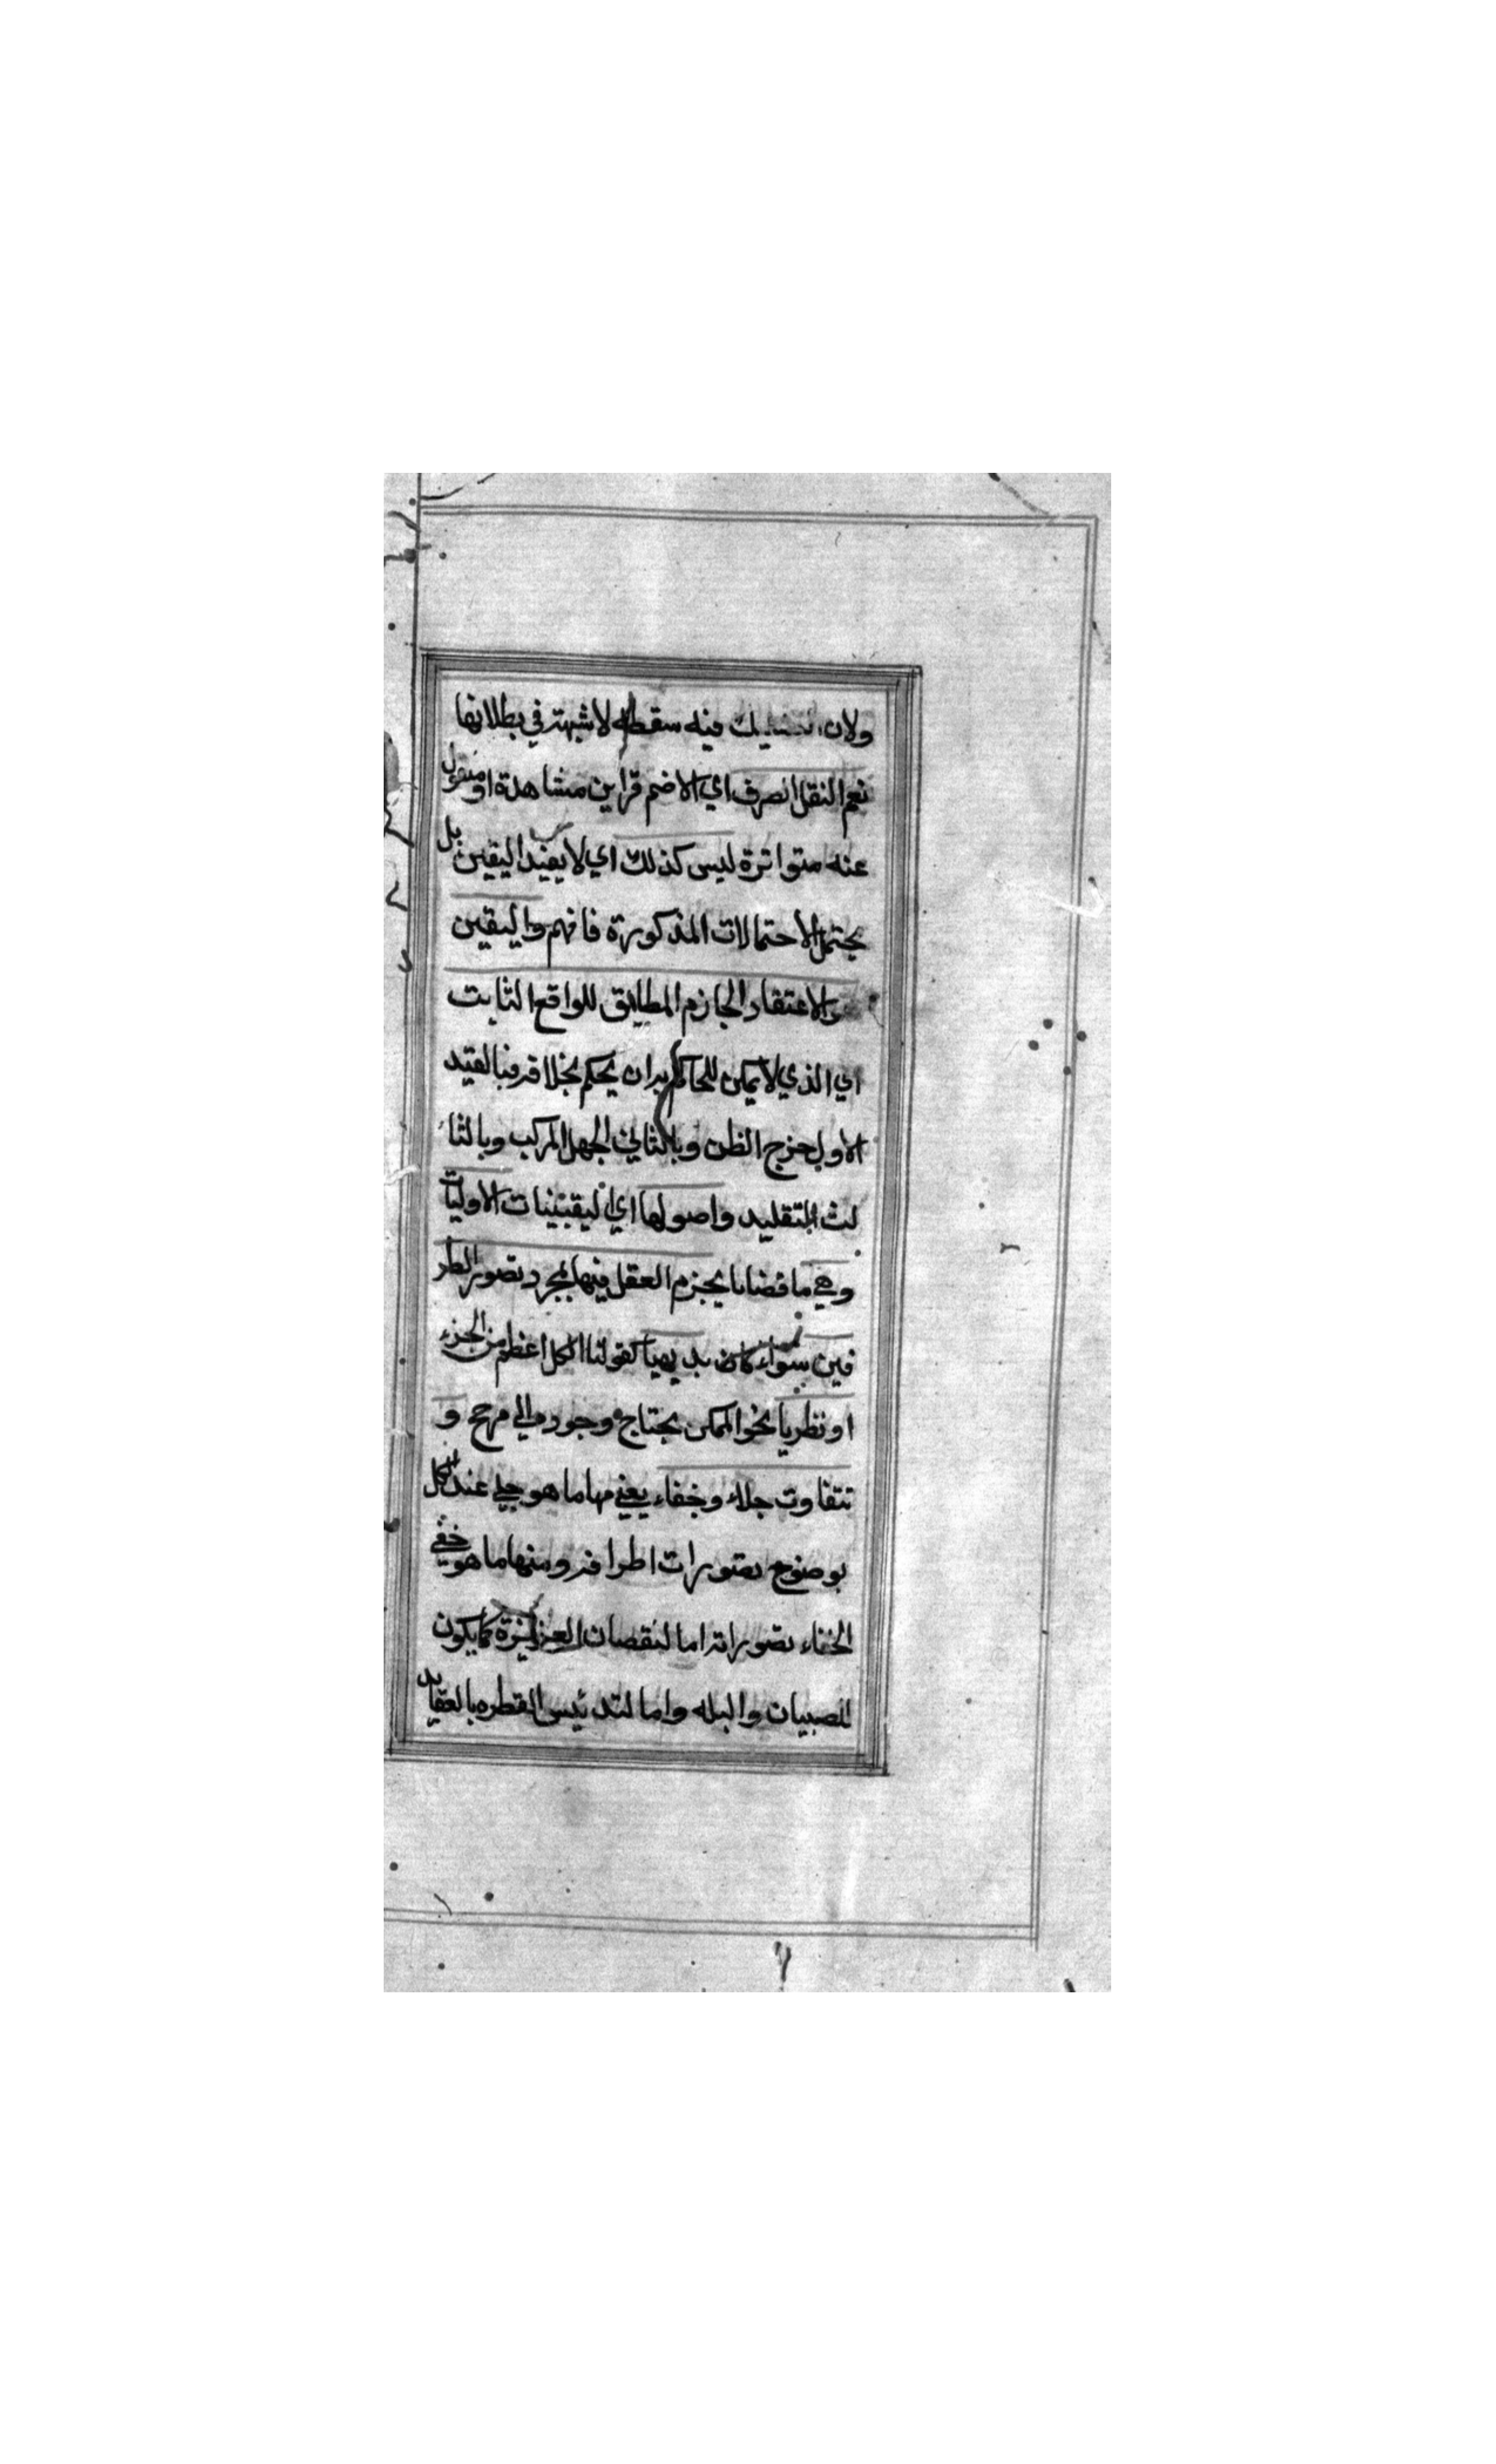 ولان التشكيك فيه سفسطه لا شبهة في بطلانها
نعم النقل الصرف اي الا ضم قراين مشاهدة او منقول
عنه متواترة ليس كذلك اي لا يفيد اليقين بل
يحتمل الاحتمالات المذكورة فافهم واليقين
هو الاعتقاد الجازم المطابق للواقع الثابت
اي الذي لا يمكن للحاكم به ان يحكم بخلافه فبالقيد
الاول خرج الظن وبالثاني الجهل المركب وبالثا
لث التقليد واصولها اي اليقينيات الاوليات
وهي ما قضايا يجزم العقل فيها بمجرد تصور الطر
فين سواء كان بديهيا كقولنا الكل اعظم من الجزء
او نظريا نحو الممكن يحتاج وجوده الي مرجح و
تتفاوت جلاء وخفاء يعني منها ما هو جلي عند الكل
بوضوح تصورات اطرافه ومنها ما هو خفي
الخفاء تصوراته اما لنقصان الغريزة كما يكون
للصبيان والبله واما لتدنيس الفطره بالعقايد